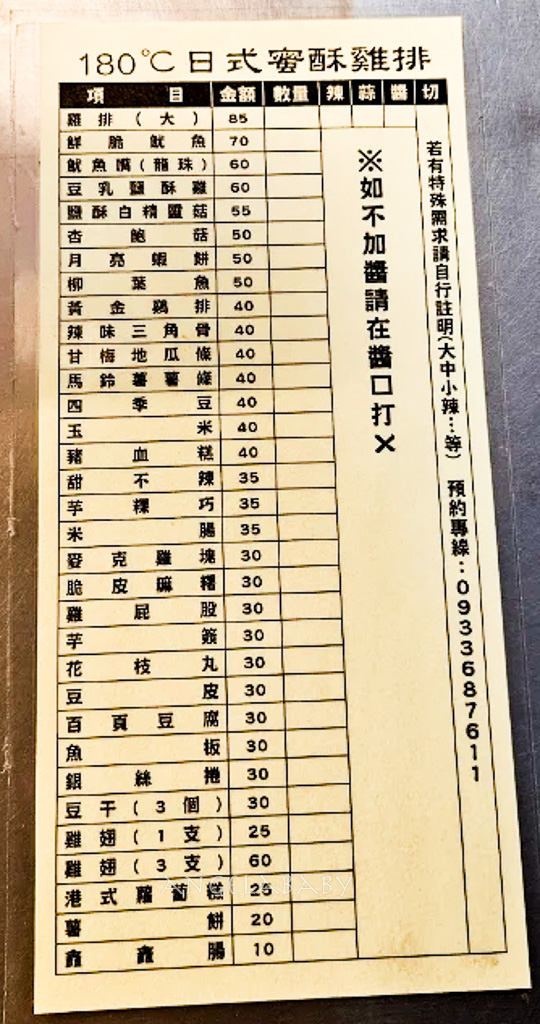 180°C日式蜜酥雞排
項目 金額 數量 辣 蒜 醬 切
雞排(大) 85
鮮脆魷魚 70
魷魚嘴(龍珠) 60
豆乳鹽酥雞 60
鹽酥白精靈菇 55
杏鮑菇 50
月亮蝦餅 50
柳葉魚 50
黃金雞排 40
辣味三角骨 40
甘梅地瓜條 40
馬鈴薯薯條 40
四季豆 40
玉米 40
豬血糕 40
甜不辣 35
芋粿巧 35
米腸 35
麥克雞塊 30
脆皮嘛糬 30
雞屁股 30
芋簽 30
花枝丸 30
豆皮 30
百頁豆腐 30
魚板 30
銀絲捲 30
豆干(3個) 30
雞翅(1支) 25
雞翅(3支) 60
港式蘿蔔糕 25
薯餅 20
鑫鑫腸 10
※如不加醬請在醬口打✕
若有特殊需求請自行註明(大中小辣…等) 預約專線:0933687611
ANGELA BABY